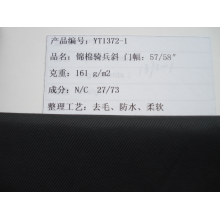 产品编号: YT1372-1
品名: 锦棉骑兵斜 门幅: 57/58"
克重: 161 g/m2
成分: N/C 27/73
整理工艺: 去毛、防水、柔软